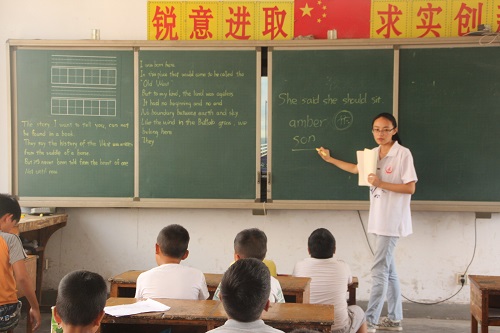 锐意进取 求实创
I was born here
In the place that would come to be called the
"Old West"
But to my kind, the land was ageless
It had no beginning and no end
No boundary between earth and sky
Like the wind in the Buffalo grass, we
belong here
They
The story I want to tell you, can not
be found in a book.
They say the history of the West was written
from the saddle of a horse
But it's never been told from the heart of one
Not until now.
She said she should sir
amber
son